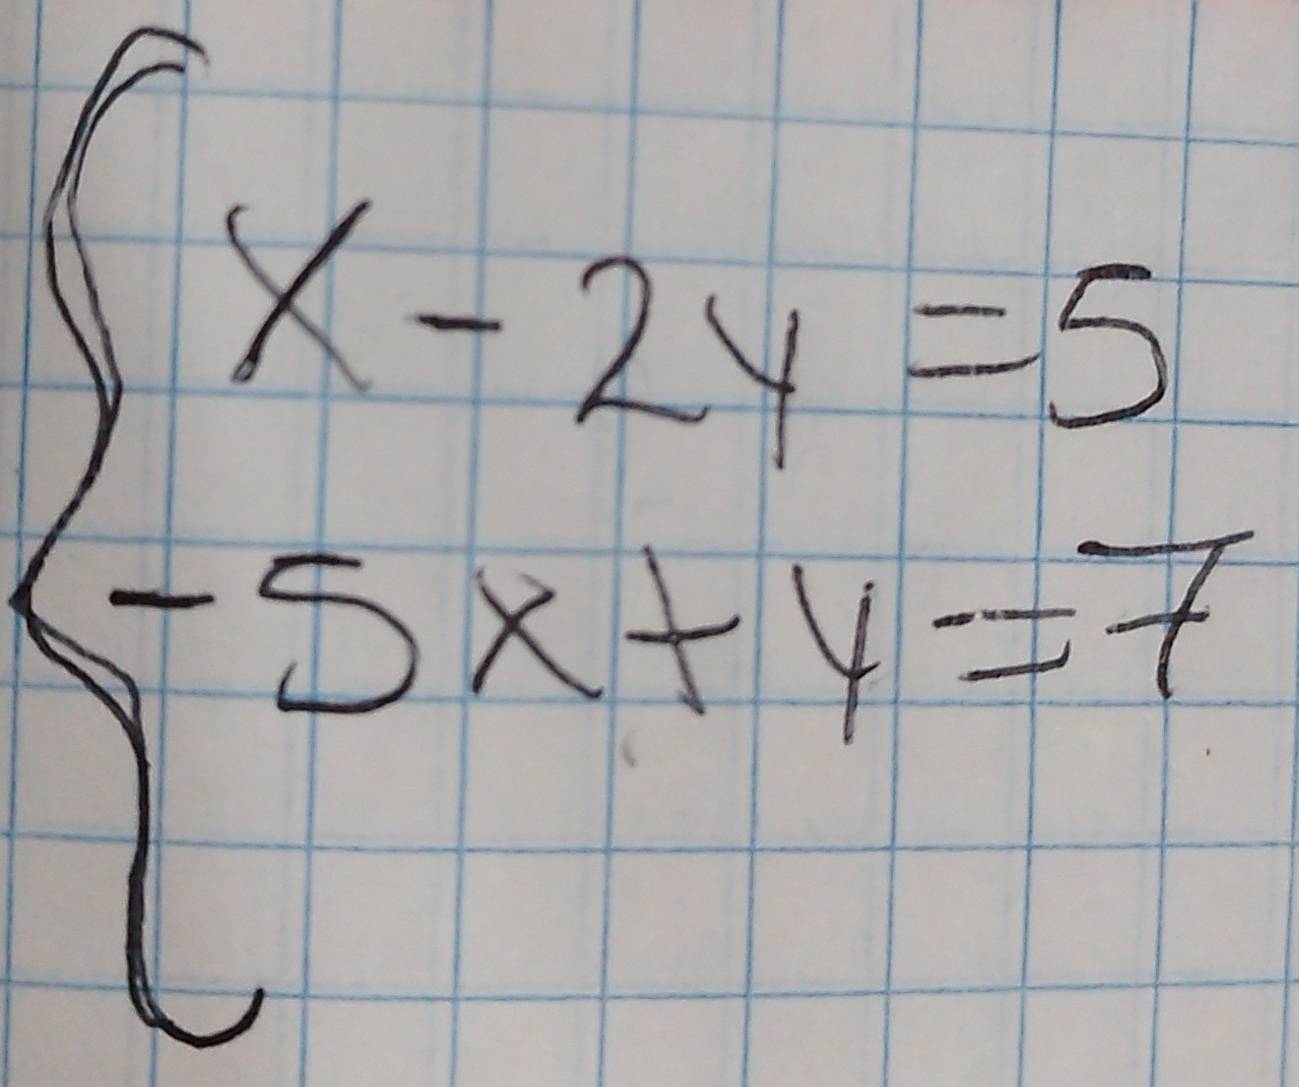 x - 2y = 5
- 5x + y = 7